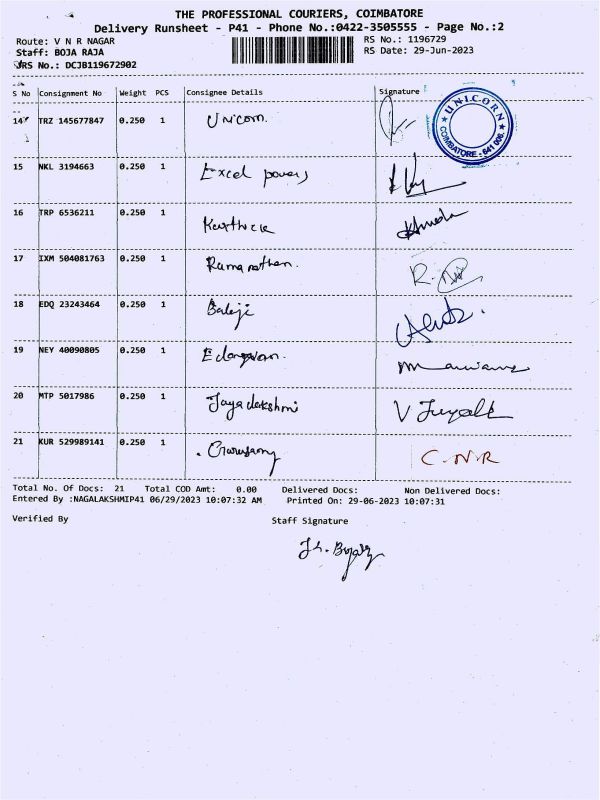 THE PROFESSIONAL COURIERS, COIMBATORE
Delivery Runsheet - P41 - Phone No.:0422-3505555 - Page No.:2
Route: V N R NAGAR
RS No.: 1196729
Staff: BOJA RAJA
RS Date: 29-Jun-2023
RS No.: DCJB119672902
S No Consignment No Weight PCS Consignee Details Signature
14 TRZ 145677847 0.250 1 Unicorn.
UNICORN COIMBATORE - 641 006.
15 NKL 3194663 0.250 1 Excel powers
16 TRP 6536211 0.250 1 Karthick
17 IXM 504081763 0.250 1 Ramanathan.
18 EDQ 23243464 0.250 1 Balaji
19 NEY 40090805 0.250 1
20 MTP 5017986 0.250 1 Jayalakshmi
21 KUR 529989141 0.250 1 C.N.R
Total No. Of Docs: 21 Total COD Amt: 0.00 Delivered Docs: Non Delivered Docs:
Entered By :NAGALAKSHMIP41 06/29/2023 10:07:32 AM Printed On: 29-06-2023 10:07:31
Verified By Staff Signature